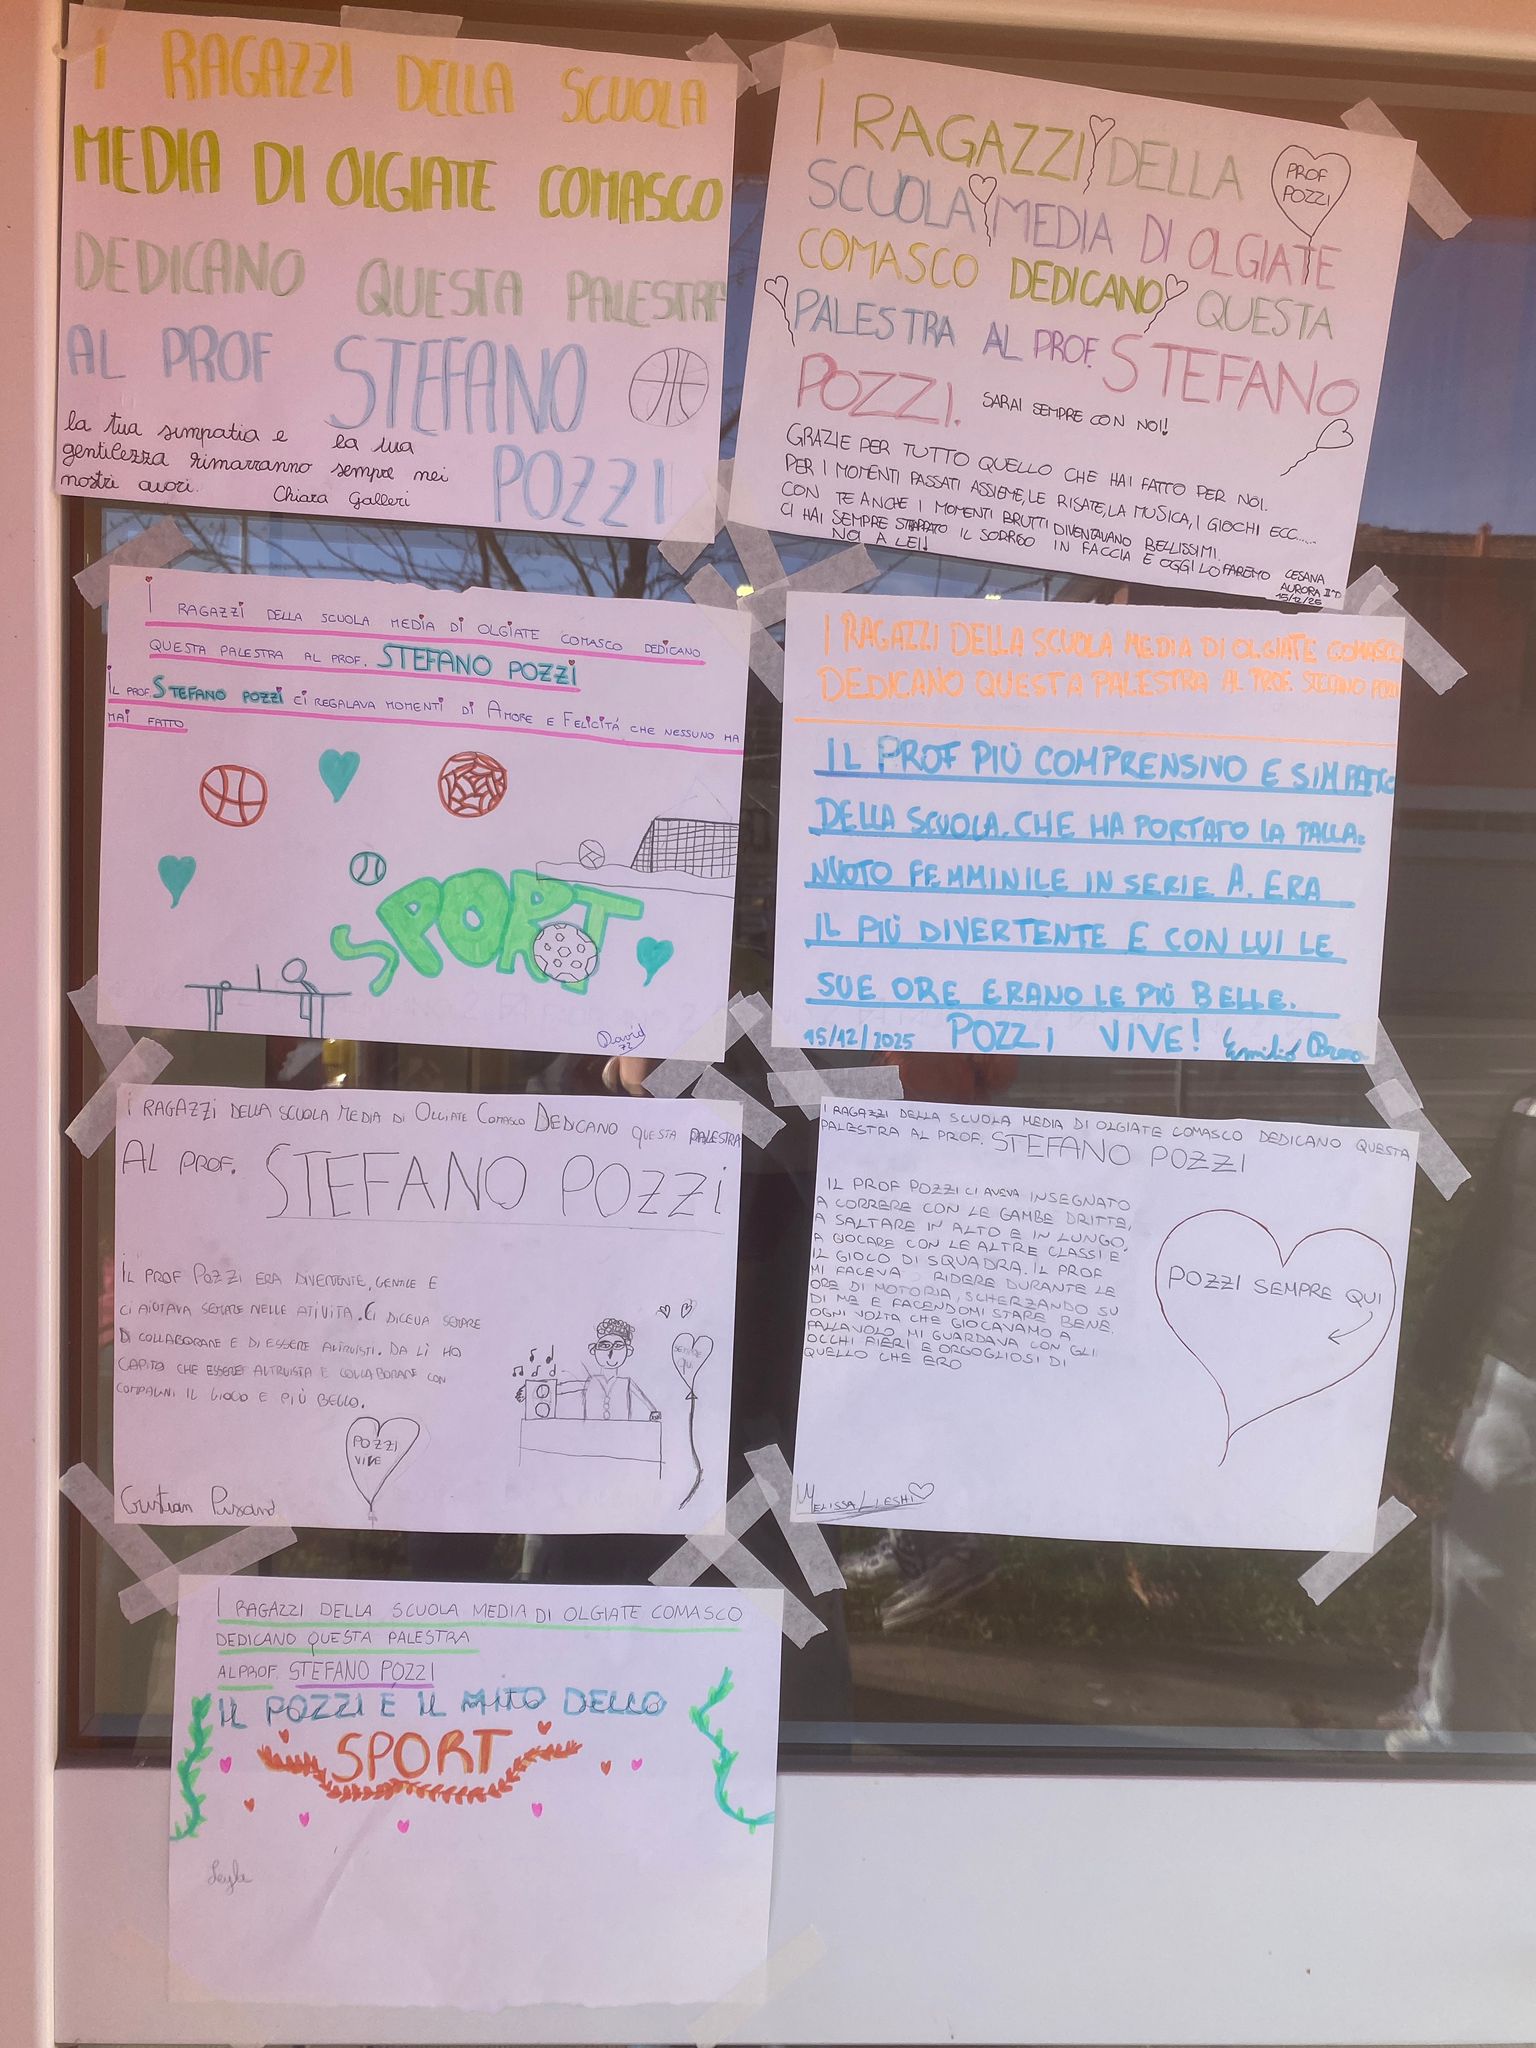 I RAGAZZI DELLA SCUOLA
MEDIA DI OLGIATE COMASCO
DEDICANO QUESTA PALESTRA
AL PROF STEFANO
POZZI
la tua simpatia e la tua
gentilezza rimarranno sempre nei
nostri cuori.
Chiara Galleri
I RAGAZZI DELLA
SCUOLA MEDIA DI OLGIATE
COMASCO DEDICANO QUESTA
PALESTRA AL PROF. STEFANO
POZZI. SARAI SEMPRE CON NOI!
PROF
POZZI
GRAZIE PER TUTTO QUELLO CHE HAI FATTO PER NOI.
PER I MOMENTI PASSATI ASSIEME, LE RISATE, LA MUSICA, I GIOCHI ECC.....
CON TE ANCHE I MOMENTI BRUTTI DIVENTAVANO BELLISSIMI.
CI HAI SEMPRE STRAPPATO IL SORRISO IN FACCIA E OGGI LO FAREMO
NOI A LEI!
CESANA
AURORA II°D
15/12/25
I RAGAZZI DELLA SCUOLA MEDIA DI OLGIATE COMASCO DEDICANO
QUESTA PALESTRA AL PROF. STEFANO POZZI
IL PROF. STEFANO POZZI CI REGALAVA MOMENTI DI AMORE E FELICITÁ CHE NESSUNO HA
MAI FATTO
SPORT
David
I RAGAZZI DELLA SCUOLA MEDIA DI OLGIATE COMASCO
DEDICANO QUESTA PALESTRA AL PROF. STEFANO POZZI
IL PROF PIÙ COMPRENSIVO E SIMPATICO
DELLA SCUOLA. CHE HA PORTATO LA PALLA=
NUOTO FEMMINILE IN SERIE A. ERA
IL PIÙ DIVERTENTE E CON LUI LE
SUE ORE ERANO LE PIÙ BELLE.
15/12/2025 POZZI VIVE! Emilio
I RAGAZZI DELLA SCUOLA MEDIA DI OLGIATE COMASCO DEDICANO QUESTA PALESTRA
AL PROF. STEFANO POZZI
IL PROF POZZI ERA DIVERTENTE, GENTILE E
CI AIUTAVA SEMPRE NELLE ATIVITA. CI DICEVA SEMPRE
DI COLLABORARE E DI ESSERE ALTRUISTI. DA LÌ HO
CAPITO CHE ESSERE ALTRUISTA E COLLABORARE CON
COMPAGNI IL GIOCO E PIÙ BELLO.
SEMPRE
QUI
POZZI
VIVE
Cristian
I RAGAZZI DELLA SCUOLA MEDIA DI OLGIATE COMASCO DEDICANO QUESTA
PALESTRA AL PROF. STEFANO POZZI
IL PROF POZZI CI AVEVA INSEGNATO
A CORRERE CON LE GAMBE DRITTE,
A SALTARE IN ALTO E IN LUNGO,
A GIOCARE CON LE ALTRE CLASSI E
IL GIOCO DI SQUADRA. IL PROF
MI FACEVA RIDERE DURANTE LE
ORE DI MOTORIA, SCHERZANDO SU
DI ME E FACENDOMI STARE BENE.
OGNI VOLTA CHE GIOCAVAMO A
PALLAVOLO MI GUARDAVA CON GLI
OCCHI FIERI E ORGOGLIOSI DI
QUELLO CHE ERO
POZZI SEMPRE QUI
MELISSA LLESHI
I RAGAZZI DELLA SCUOLA MEDIA DI OLGIATE COMASCO
DEDICANO QUESTA PALESTRA
AL PROF. STEFANO POZZI
IL POZZI E IL MITO DELLO
SPORT
Leyla